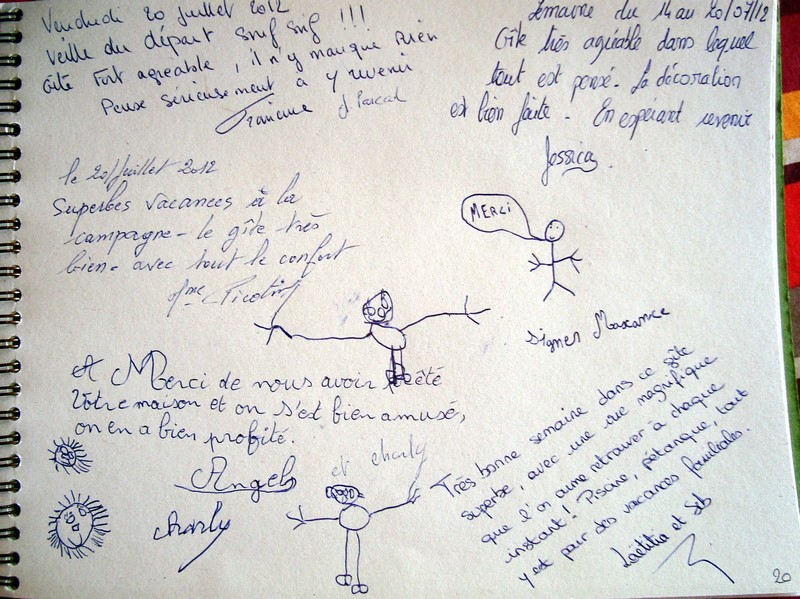 Vendredi 20 Juillet 2012
Veille du départ Snif Snif !!!
Gîte Fort agreable, il n'y manque Rien
Pense Sérieusement a y revenir
Francine J. Pascal
Semaine du 14 au 20/07/12
Gîte très agréable dans lequel
tout est pensé. La décoration
est bien faite. En espérant revenir
Jessica.
le 20/Juillet 2012
Superbes vacances à la
campagne - le gîte très
bien - avec tout le confort
Mme
MERCI
Signer Maxance
Merci de nous avoir prêté
Vôtre maison et on s'est bien amusés,
on en a bien profité.
Angels et charly
charly
Très bonne semaine dans ce gîte
superbe, avec une vue magnifique
que l'on aime retrouver à chaque
instant ! Piscine, pétanque, tout
y est pour des vacances familiales.
Laëtitia et Seb
20